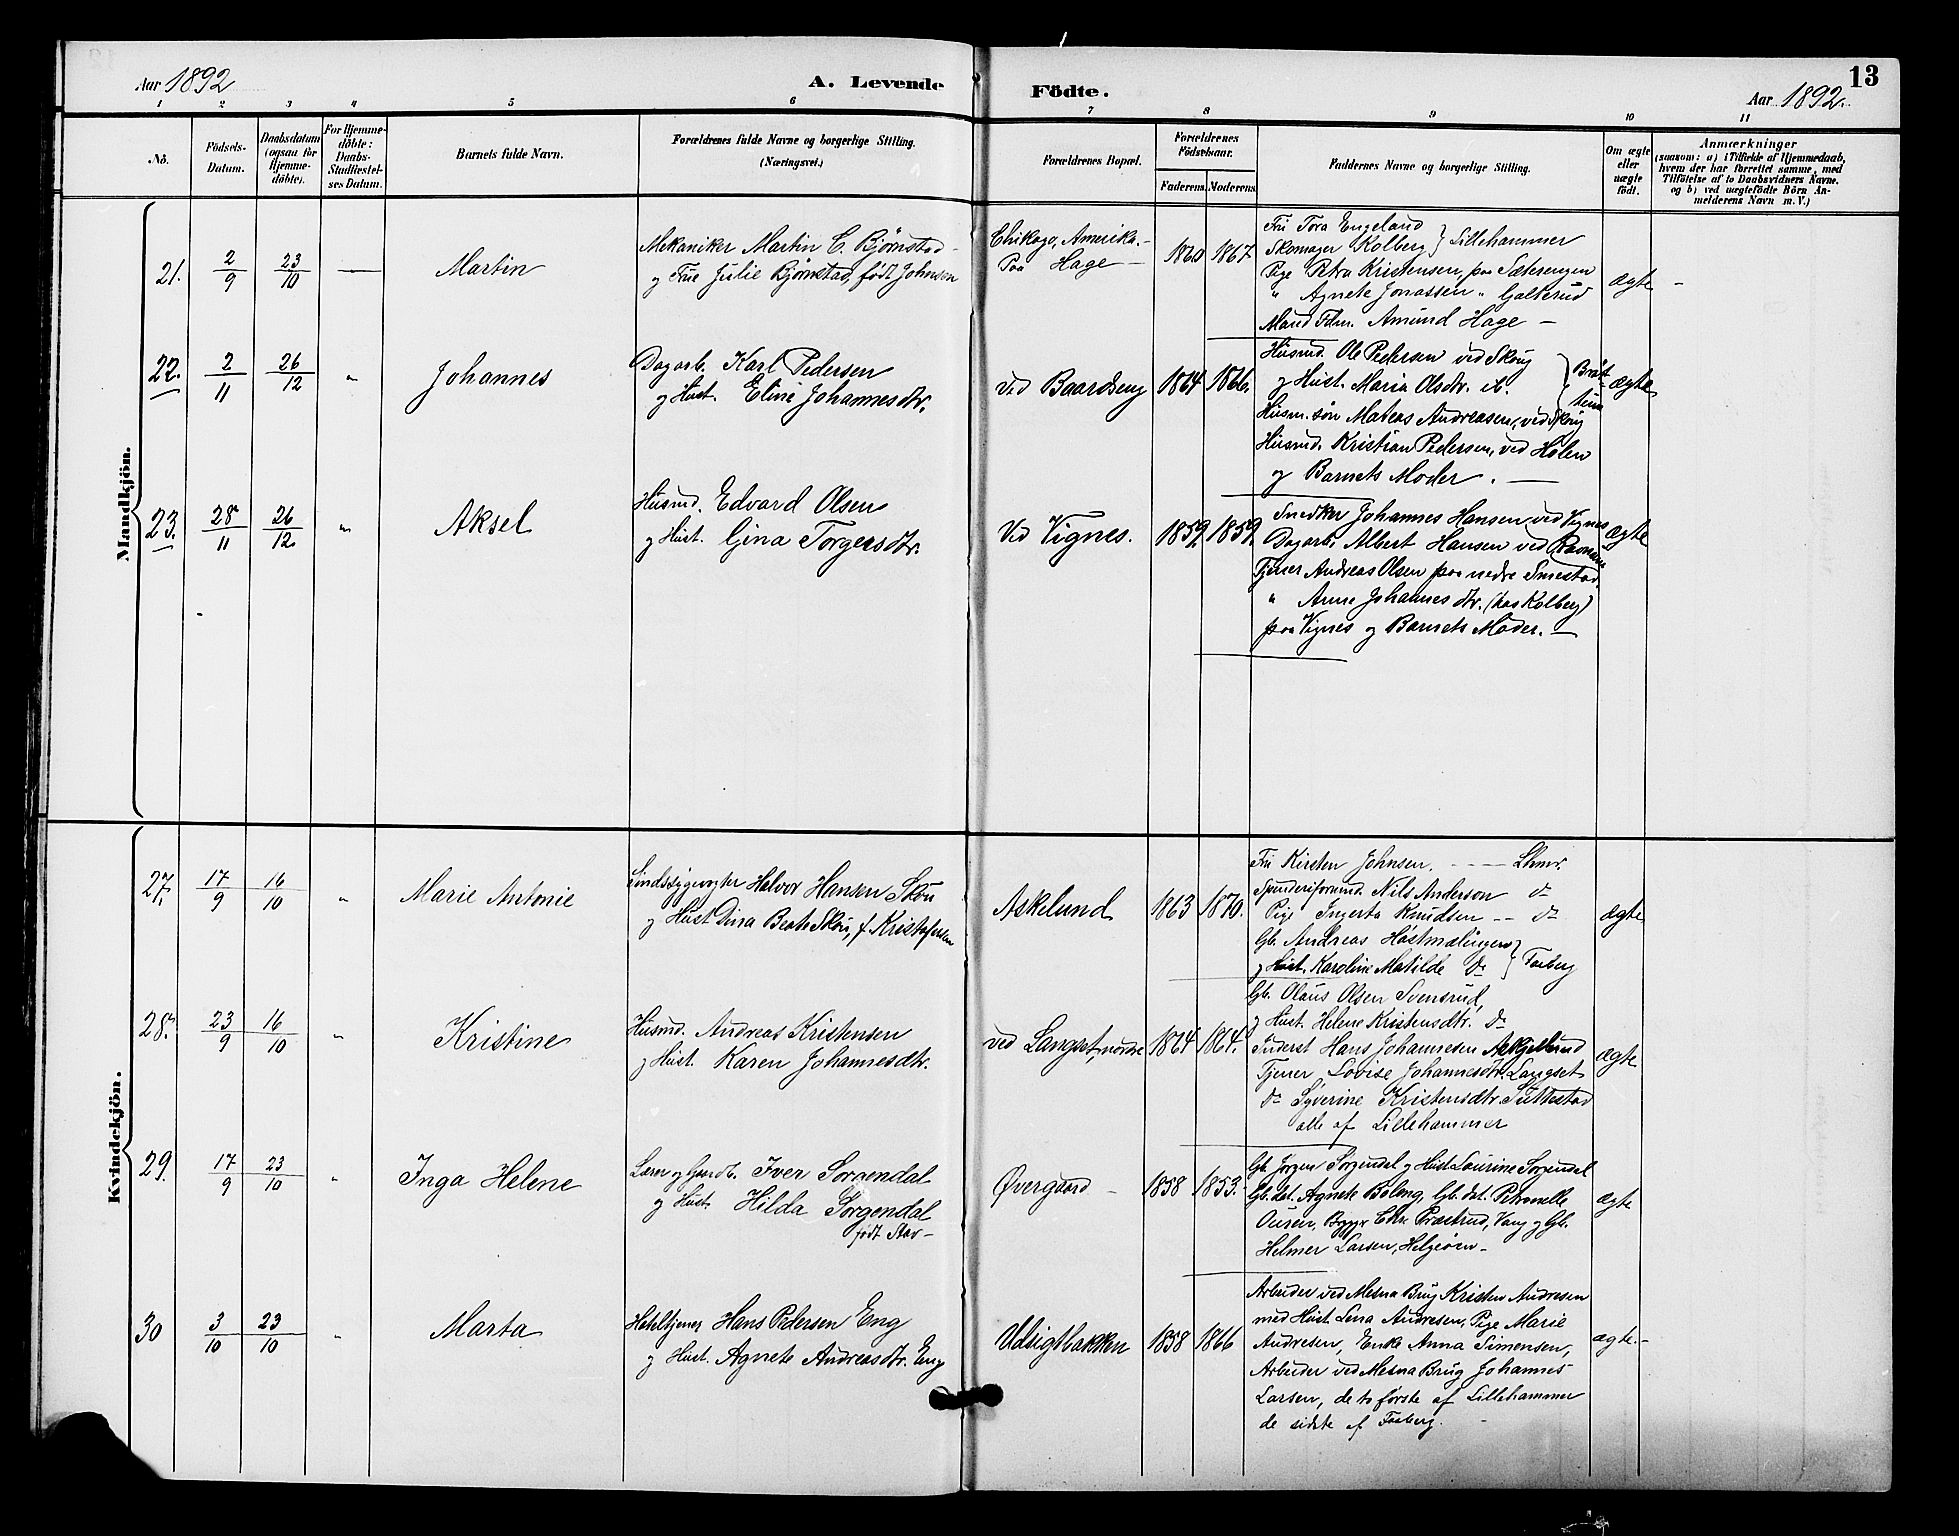 Aar 1892
A. Levende Födte.
Aar 1892.
13
1 2 3 4 5 6 7 8 9 10 11
No.
Födsels-Datum.
Daabsdatum (ogsaa for Hjemme-döbte).
For Hjemme-döbte: Daabs-Stadfæstel-ses Datum.
Barnets fulde Navn.
Forældrenes fulde Navne og borgerlige Stilling. (Næringsvei.)
Forældrenes Bopæl.
Forældrenes Födselsaar.
Faderens. Moderens.
Faddernes Navne og borgerlige Stilling.
Om ægte eller uægte födt.
Anmærkninger
(saasom: a) i Tilfælde af Hjemmedaab,
hvem der har forrettet samme, med
Tilföielse af to Daabsvidners Navne,
og b) ved uægtefödte Börn An-
melderens Navn m. V.)
Mandkjön.
21. 2/9 23/10 — Martin
Mekaniker Martin C. Bjørnstad
og Frue Julie Bjørnstad, født Johnsen
Chikago, Amerika.
Paa Hage
1860 1867.
Fru Tora Engeland
Skomager Kolberg } Lillehammer
Pige Petra Kristensen, paa Sæterengen
" Agnete Jonassen " Galterud
Mand Fdm. Amund Hage —
ægte -
22. 2/11 26/12 " Johannes
Dagarb. Karl Pedersen
og Hust. Eline Johannesdtr.
ved Baardseng 1864 1866.
Husmd. Ole Pedersen ved Skoug
og Hust. Maria Olsdr. ib.
Husm. søn Mateas Andreasen, ved Skoug
Husmd. Kristian Pedersen, ved Holen
og Barnets Moder. —
ægte
23. 28/11 26/12 " Aksel
Husmd. Edvard Olsen
og Hust. Gina Torgersdtr.
Ved Vignes. 1859. 1859.
Snedker Johannes Hansen ved Vignes
Dagarb. Albert Hansen ved
Tjener Andreas Olsen paa nedre Smestad,
" Anne Johannesdtr. (hos Kolberg)
paa Vignes og Barnets Moder. —
ægte
Kvindekjön.
27. 17/9 16/10 " Marie Antonie
Sindssygevogter Halvor Hansen Skou
og Hust Dina Beate Skou, f. Kristofersen
Askelund 1863 1870.
Fru Kirsten Johnsen. - - - - Lhmr.
Spinderiformd. Nils Anderson do
Pige Ingerta Knudsen - - do
Gb. Andreas Høstmælingen
og Hust. Karoline Matilde do } Faaberg
ægte
28. 23/9 16/10 " Kristine
Husmd. Andreas Kristensen
og Hust. Karen Johannesdtr.
ved Langset, nordre 1864 1864.
Gb. Olaus Olsen Svensrud,
og Hust. Helene Kristensdtr. do
Inderst Hans Johannesen Askjelund
Tjener Lovise Johannesdtr. Langset
do Syverine Kristensdtr. Suttestad
alle af Lillehammer
ægte
29. 17/9 23/10 " Inga Helene
Lærer og Gaardb. Iver Sorgendal
og Hust. Hilda Sorgendal
født Stav -
Øvergaard - 1858 1853.
Gb. Jørgen Sorgendal og Hust Laurine Sorgendal
Gb.dat. Agnete Boleng, Gb. dat. Petronelle
Ousen, Præstrud, Vang og Gb.
Helmer Larsen, Helgeøen -
ægte
30 3/10 23/10 " Marta
Hoteltjener Hans Pedersen Eng
og Hust. Agnete Andreasdtr. Eng
Udsigtbakken 1858 1866
Arbeider ved Mesna Brug Kristen Andresen
med Hust. Lena Andresen, Pige Marie
Andresen, Enke Anna Simensen,
Arbeider ved Mesna Brug Johannes
Larsen, de to første af Lillehammer
de sidste af Faaberg.
ægte. -